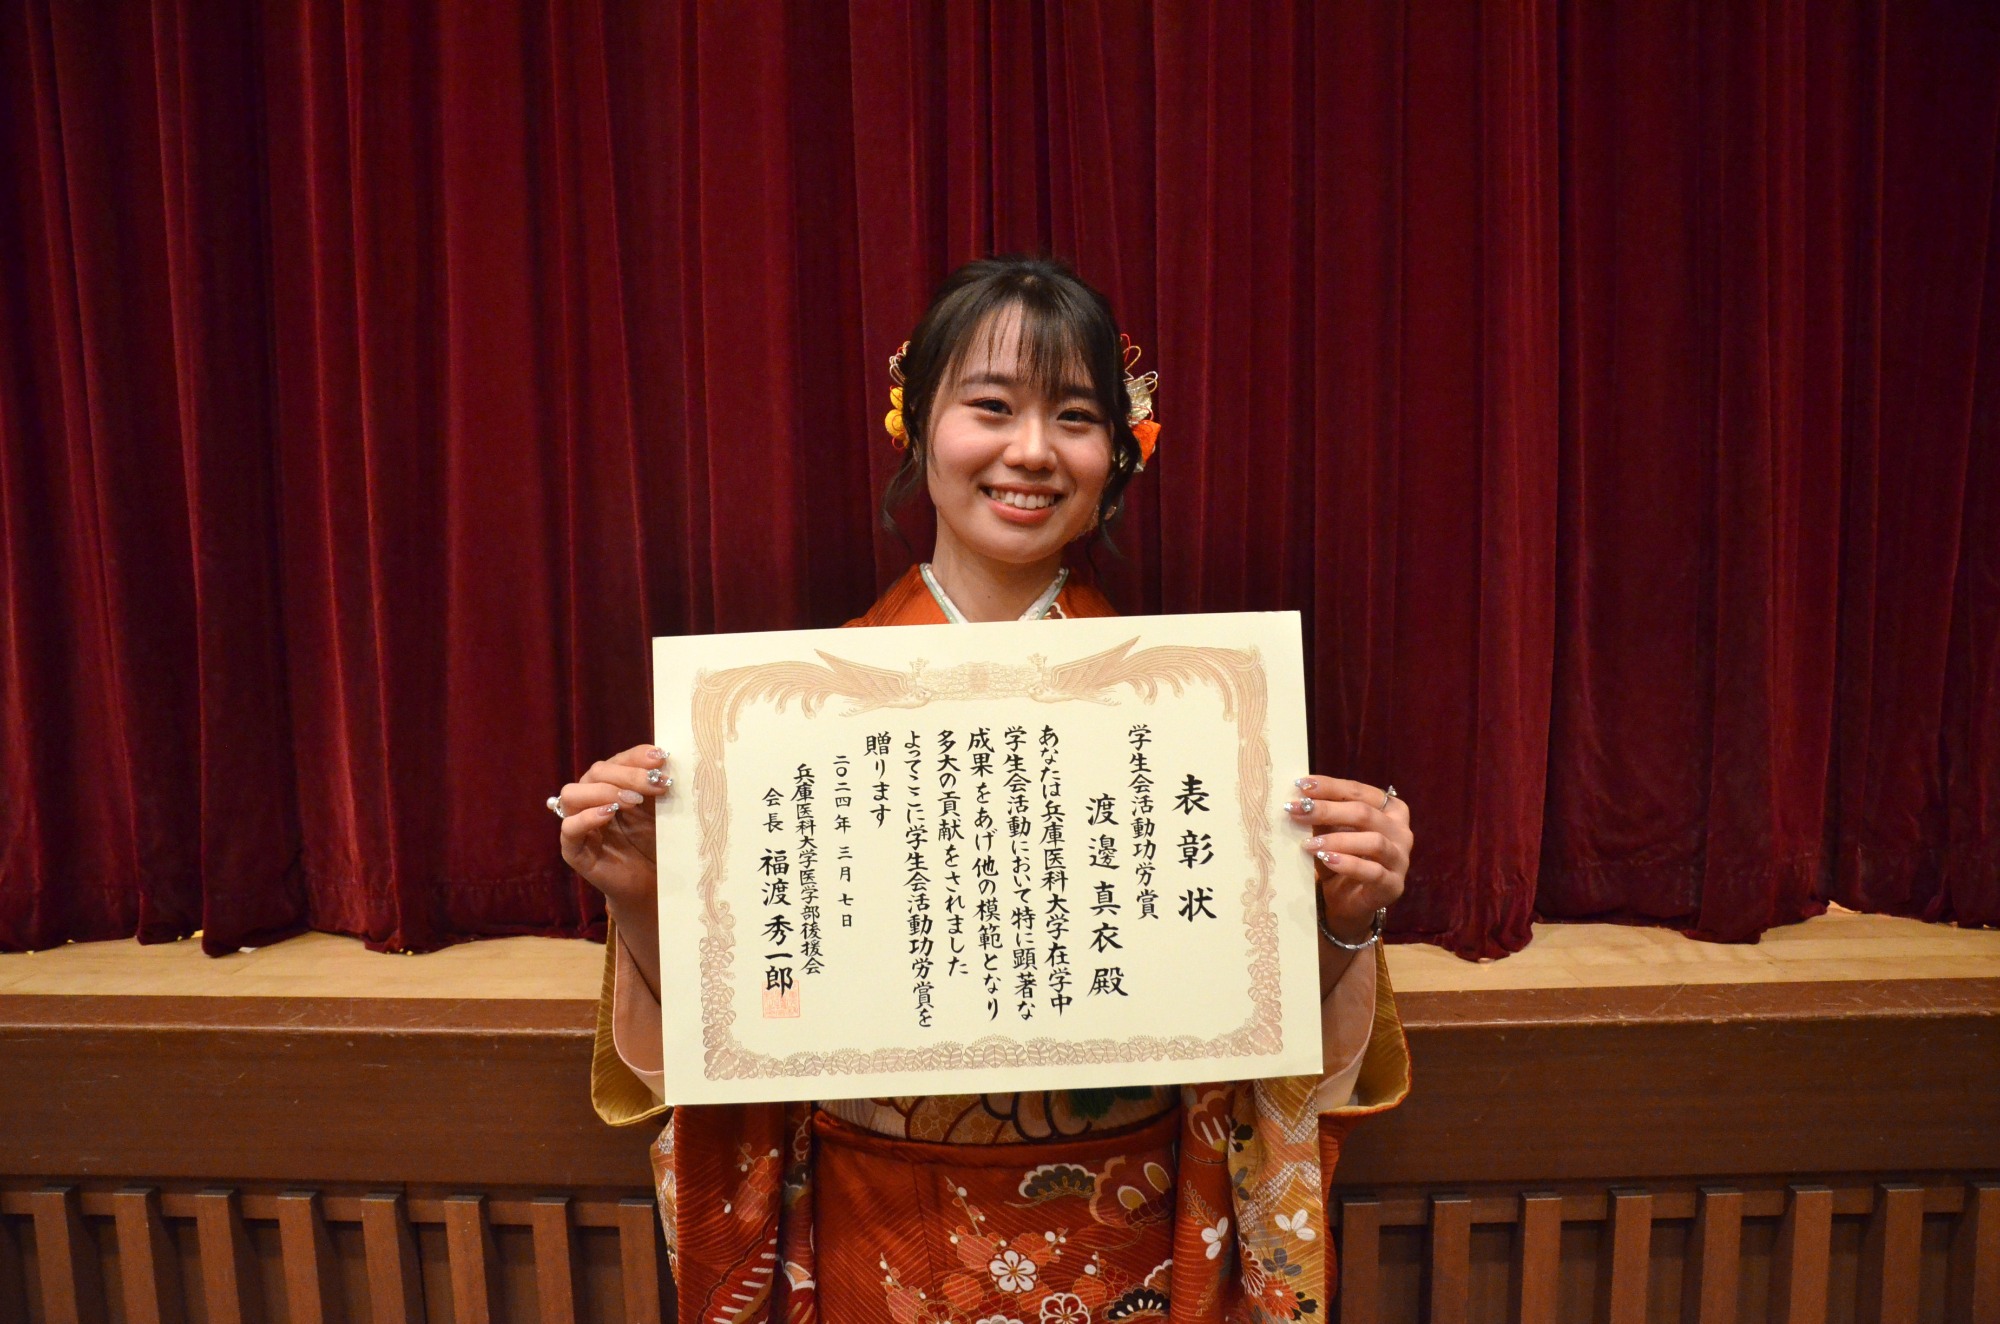 表彰状
学生会活動功労賞
渡邊真衣殿
あなたは兵庫医科大学在学中
学生会活動において特に顕著な
成果をあげ他の模範となり
多大の貢献をされました
よってここに学生会活動功労賞を
贈ります
二〇二四年三月七日
兵庫医科大学医学部後援会
会長 福渡秀一郎